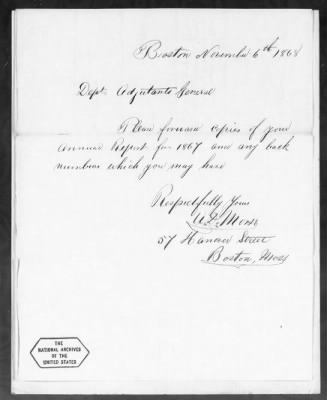 Boston November 6th 1868
Dept. Adjutants General
Please forward copies of your
Annual Report for 1867 and any back
numbers which you may have
Respectfully Yours
57 Hanover Street
Boston, Mass
THE
NATIONAL ARCHIVES
OF THE
UNITED STATES